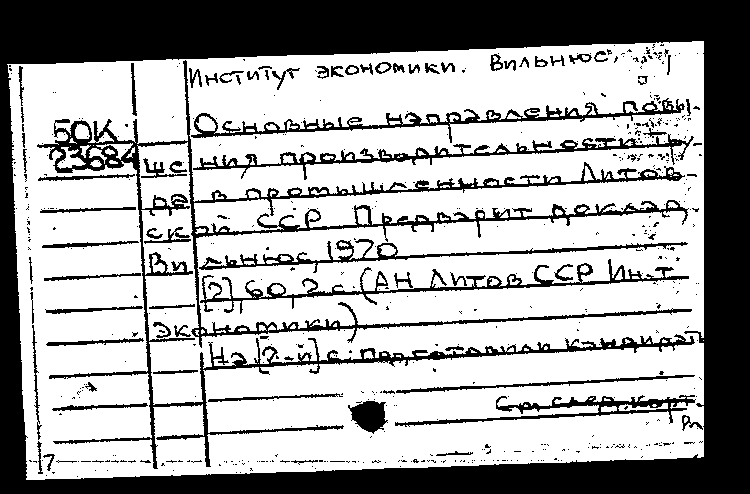 Институт экономики. Вильнюс.
Основные направления повы-
50К
23684 ше ния производительности тру-
да в промышленности Литов-
ской ССР Предварит доклад
Вильнюс, 1970
[2], 60, 2 с. (АН Литов ССР Ин-т
экономики)
На [2-й] с. подготовили кандидаты
См. след. карт.
7